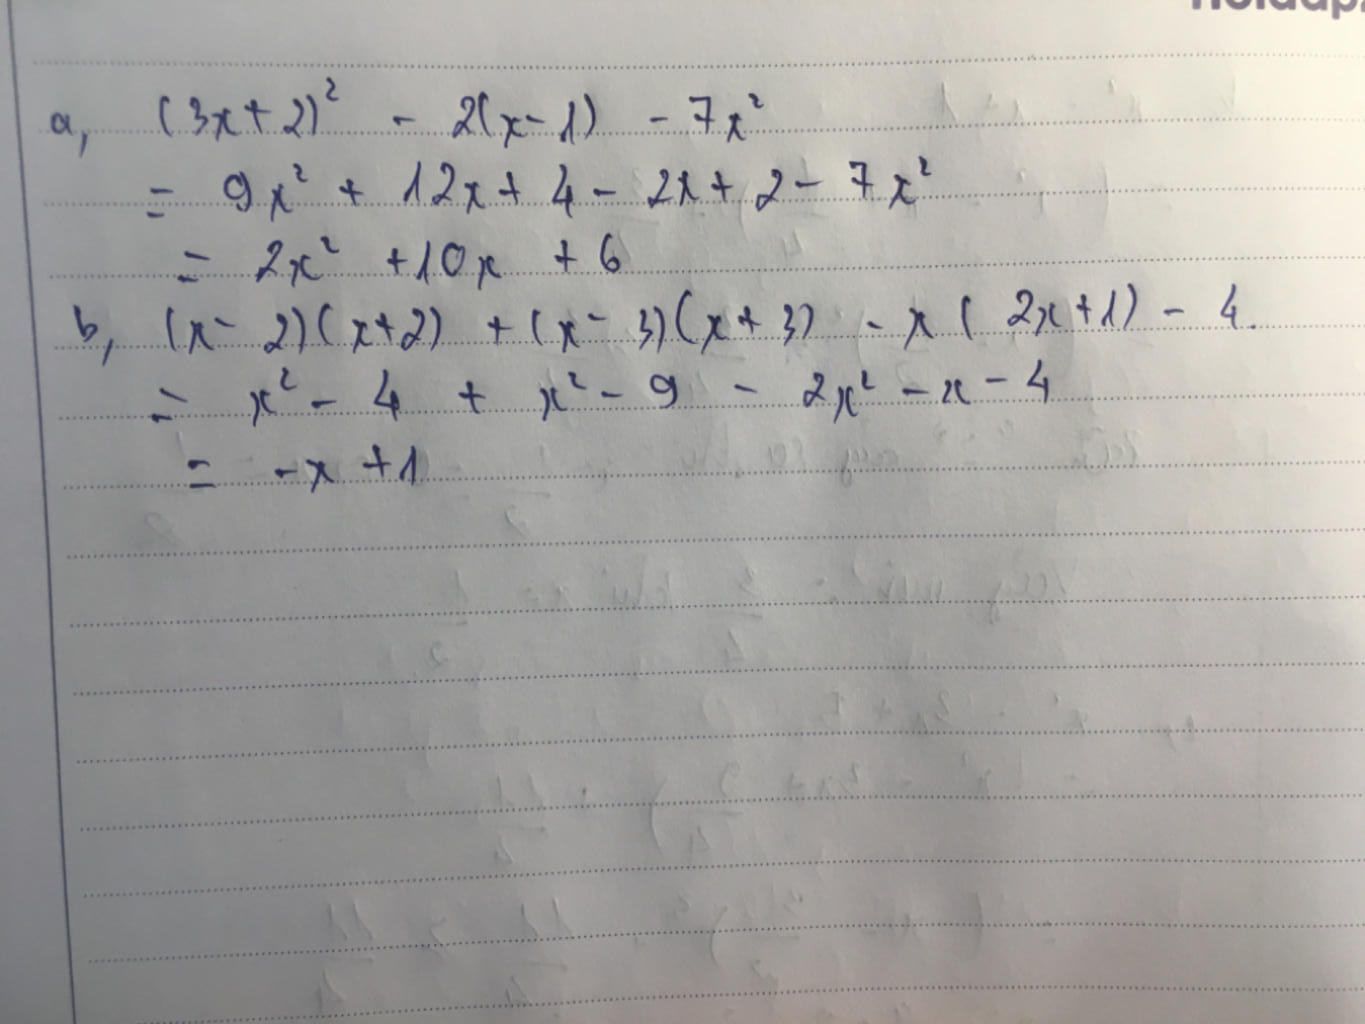 a, (3x+2)² - 2(x-1) - 7x²
= 9x² + 12x + 4 - 2x + 2 - 7x²
= 2x² + 10x + 6
b, (x-2)(x+2) + (x-3)(x+3) - x(2x+1) - 4.
= x² - 4 + x² - 9 - 2x² - x - 4
= -x + 1